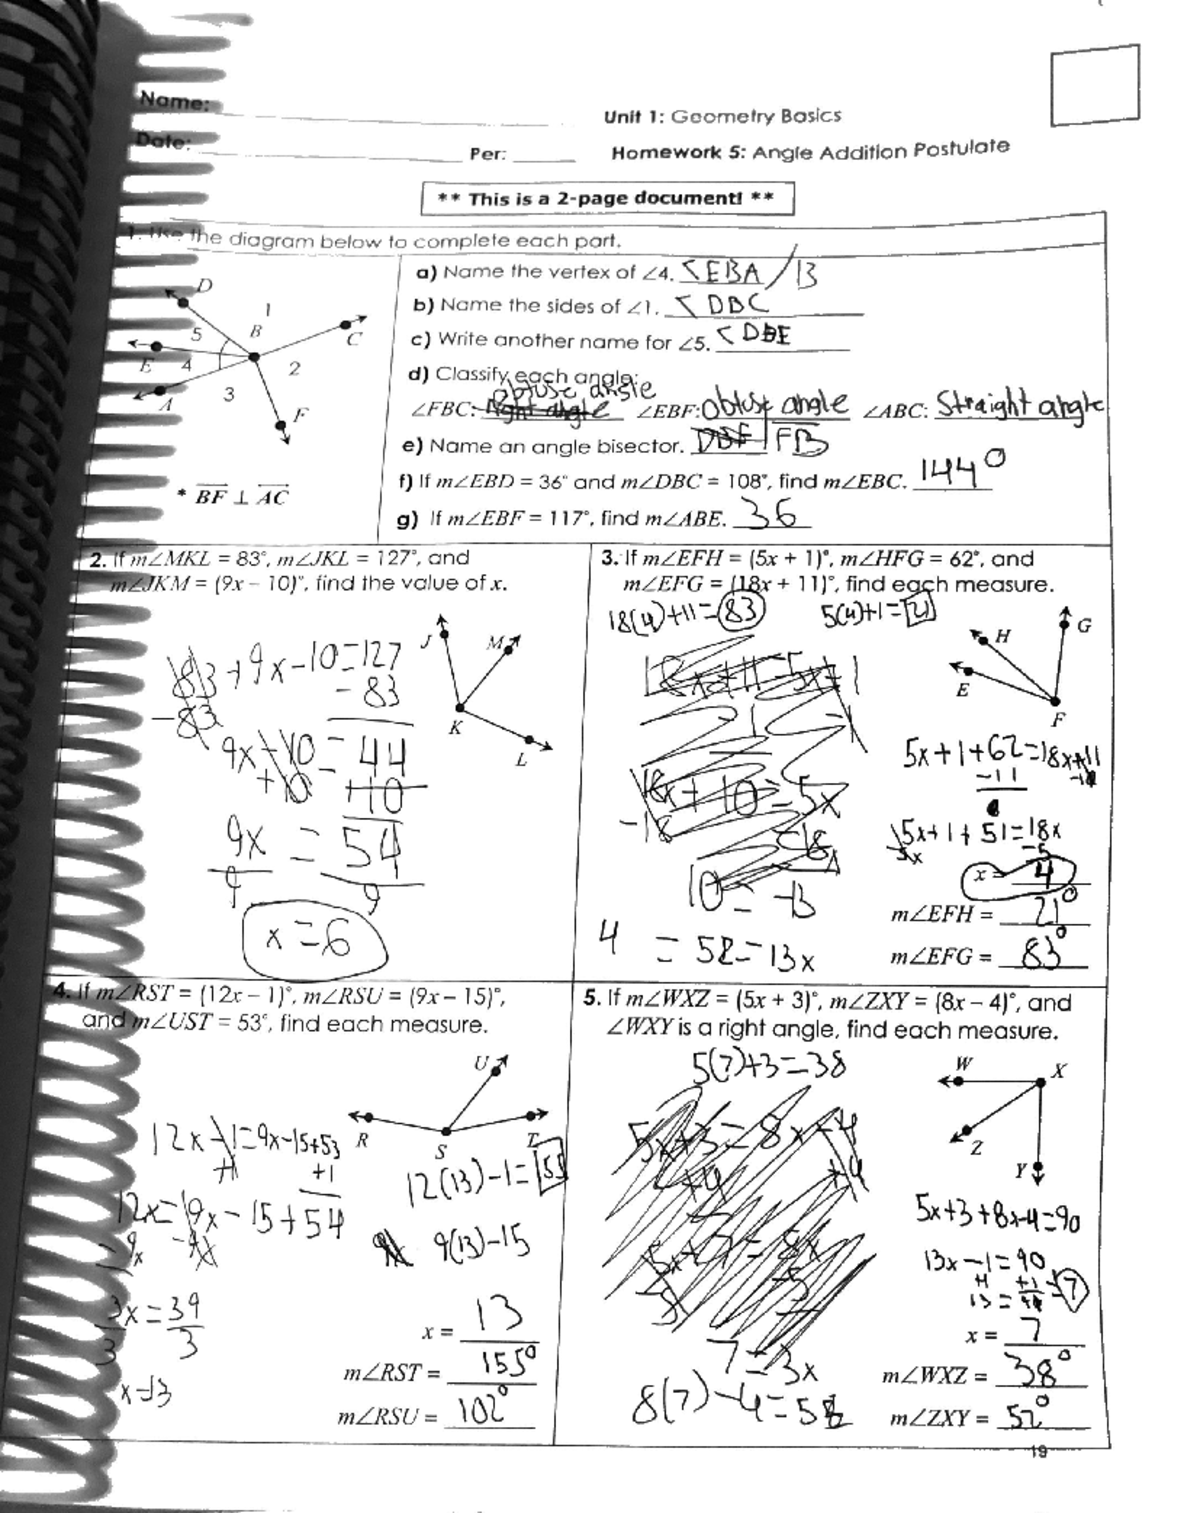 Name:
Unit 1: Geometry Basics
Date:
Per:
Homework 5: Angle Addition Postulate
** This is a 2-page document! **
1. Use the diagram below to complete each part.
D
1
5
B
C
E
4
2
3
A
F
* BF ⊥ AC
a) Name the vertex of ∠4. <EBA / B
b) Name the sides of ∠1. <DBC
c) Write another name for ∠5. <DBE
d) Classify each angle:
obtuse angle
∠FBC: Right angle ∠EBF: Obtuse angle ∠ABC: Straight angle
e) Name an angle bisector. DBF | FB
f) If m∠EBD = 36° and m∠DBC = 108°, find m∠EBC. 144°
g) If m∠EBF = 117°, find m∠ABE. 36
2. If m∠MKL = 83°, m∠JKL = 127°, and
m∠JKM = (9x – 10)°, find the value of x.
J
M
K
L
83 + 9x-10=127
-83
-83
9x-10 = 44
+10
+10
9x = 54
9
9
x=6
3. If m∠EFH = (5x + 1)°, m∠HFG = 62°, and
m∠EFG = (18x + 11)°, find each measure.
18(4)+11=83
5(4)+1=21
G
H
E
F
18x+11=5x+1
-1
-1
18x+10=5x
-18
-18
10 = -13
5x+1+62=18x+11
-11
5x+1+51=18x
-5x
-5
x = 4
m∠EFH = 21°
4 = 52=13x
m∠EFG = 83°
4. If m∠RST = (12x – 1)°, m∠RSU = (9x – 15)°,
and m∠UST = 53°, find each measure.
U
R
S
T
12x-1=9x-15+53
+1
+1
12(13)-1=155
12x=9x-15+54
-9x
-9x
9(13)-15
3x=39
3
3
x=13
x = 13
m∠RST = 155°
m∠RSU = 102°
5. If m∠WXZ = (5x + 3)°, m∠ZXY = (8x – 4)°, and
∠WXY is a right angle, find each measure.
5(7)+3=38
W
X
Z
Y
5x+3=8x-4
+4
+4
5x+7=8x
-5
-5
7=3x
8(7)-4=52
5x+3+8x-4=90
13x-1=90
+1
+1
=7
x = 7
m∠WXZ = 38°
m∠ZXY = 52°
19